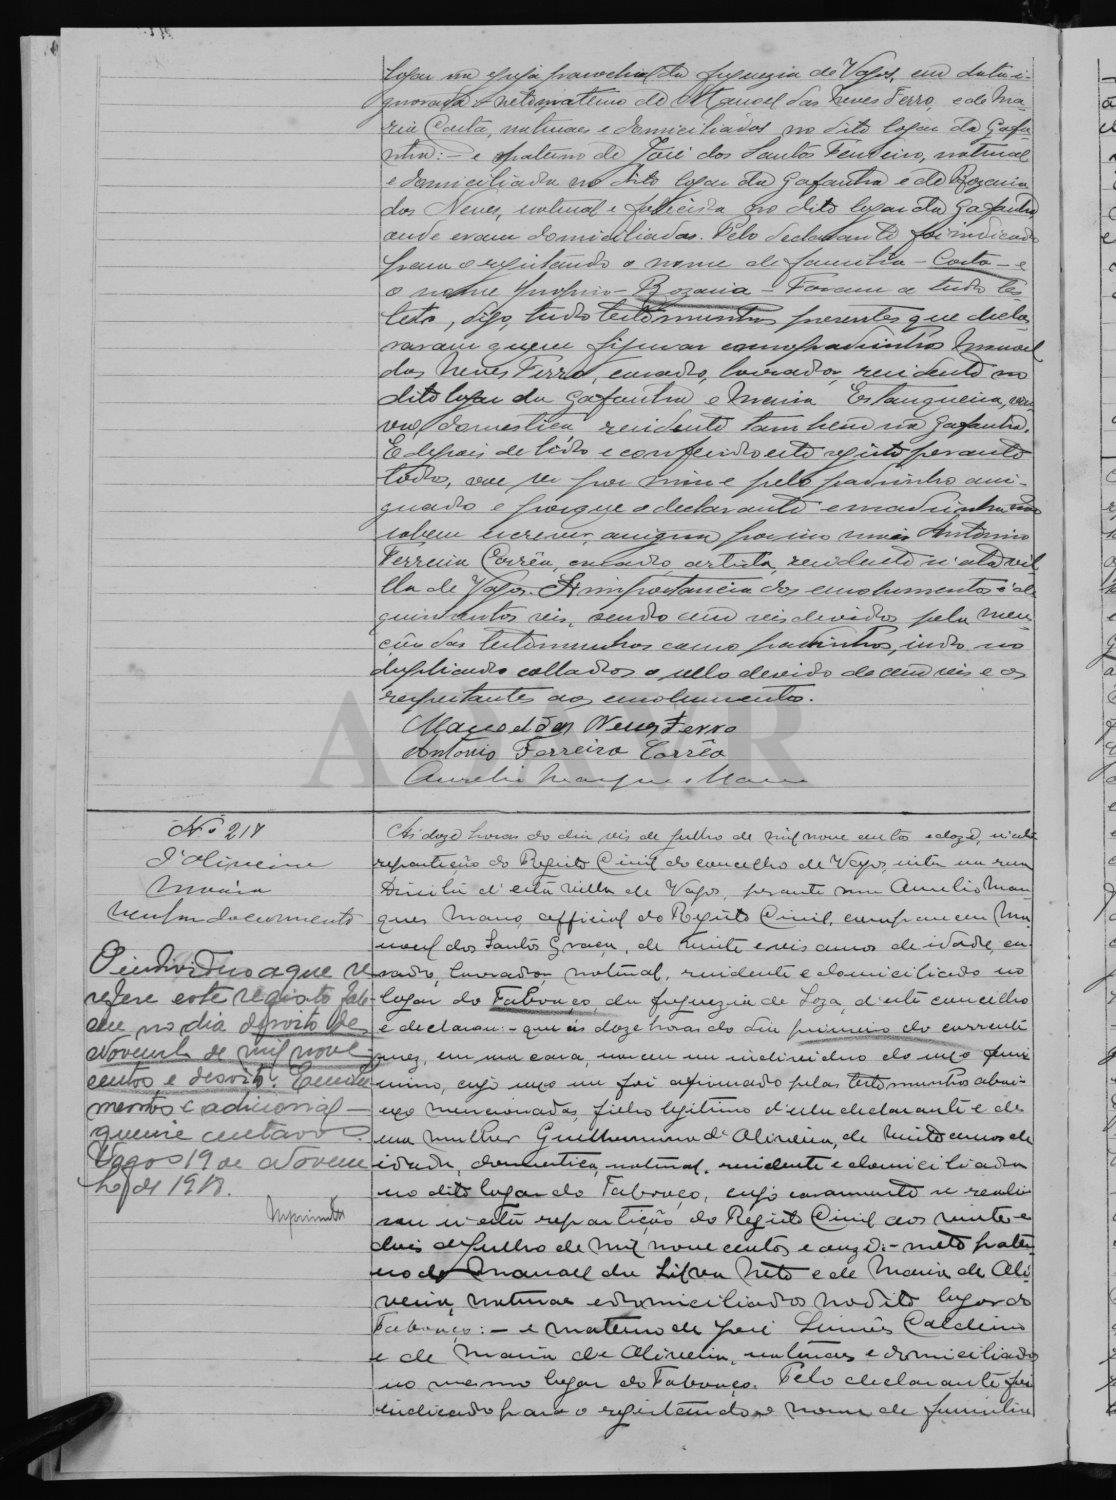 logar na egreja parochial da freguezia de Vagos, em data i-
gnorada: neto materno de Manoel das Neves Ferro, e de Ma-
ria Costa, naturaes e domiciliados no dito logar da Gafa-
nha: - e paterno de José dos Santos, natural
e domiciliado no dito logar da Gafanha e de Rozaria
das Neves, natural e fallecida no dito logar da Gafanha
onde eram domiciliados. Pelo declarante foi indicado
para o registando o nome de familia - Costa - e
o nome proprio - Rozaria - Foram a tudo tes-
teta, digo, tudo testemunhas presentes que decla-
raram querer figurar como padrinhos Manoel
das Neves Ferro, casado, lavrador, residente no
dito logar da Gafanha e Maria Estanqueira, viu-
va, domestica, residente tambem na Gafanha.
E depois de lido e conferido este registo perante
todos, vae ser por mim e pelo padrinho assi-
gnado e porque o declarante e madrinha não
sabem escrever, assigna por isso mais Antonio
Ferreira Corrêa, casado, artista, residente n'esta vil-
lla de Vagos. A importancia dos emolumentos é de
quinhentos reis, sendo cem reis devidos pela men-
ção das testemunhas como padrinhos, indo no
duplicado collados o sello devido de cem reis e os
respeitantes aos emolumentos.
Manoel das Neves Ferro
Antonio Ferreira Corrêa
Aurelio Marques Mano
ADAVR
Nº 217
d'Oliveira
Maria
nenhum documento
O individuo a que se
refere este registo fale-
ceu no dia dezoito de
Novembro de mil nove-
centos e dezoito. Emolu-
mentos e adicional -
quinze centavos.
Vagos 19 de Novem-
bro de 1918.
Ás doze horas do dia seis de julho de mil nove centos e doze, n'esta
repartição do Registo Civil do concelho de Vagos, sita na rua
Direita d'esta villa de Vagos, perante mim Aurelio Mar-
ques Mano, official do Registo Civil, compareceu Ma-
noel dos Santos Graça, de vinte e seis annos de idade, ca-
sado, lavrador, natural, residente e domiciliado no
logar do Fabouço, da freguezia de Soza, d'este concelho
e declarou: - que ás doze horas do dia primeiro do corrente
mez, em sua casa, nasceu um individuo do sexo femi-
nino, cujo sexo me foi afirmado pelas testemunhas abai-
xo mencionadas, filho legitimo d'elle declarante e de
sua mulher Guilhermina d'Oliveira, de vinte annos de
idade, domestica, natural, residente e domiciliada
no dito logar do Fabouço, cujo casamento se reali-
sou n'esta repartição do Registo Civil aos vinte e
dois de julho de mil nove centos e onze: - neto pater-
no de Manoel da Silva Neto e de Maria de Oli-
veira, naturaes e domiciliados no dito logar do
Fabouço: - e materno de José Caldeira
e de Maria de Oliveira, naturaes e domiciliados
no mesmo logar do Fabouço. Pelo declarante foi
indicado para o registando o nome de familia